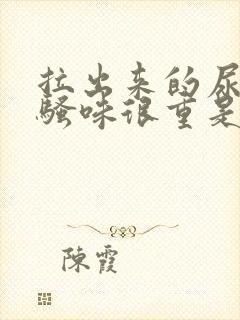 拉出来的尿
骚味很重是
陳霞